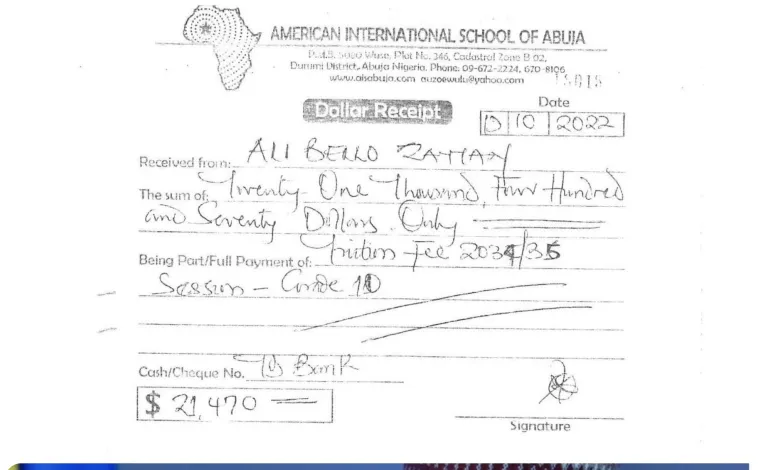 AMERICAN INTERNATIONAL SCHOOL OF ABUJA
P.M.B. 5090 Wuse, Plot No. 346, Cadastral Zone B 02,
Durumi District, Abuja Nigeria. Phone: 09-672-2224, 670-8106
www.aisabuja.com auzoewulu@yahoo.com
Dollar Receipt
Date
10 2022
Received from: ALI BELLO
The sum of: Twenty One Thousand, Four Hundred
and Seventy Dollars Only
Being Part/Full Payment of: Tuition Fee 2034/35
Session - Grade
Cash/Cheque No. Bank
$ 21,470
Signature